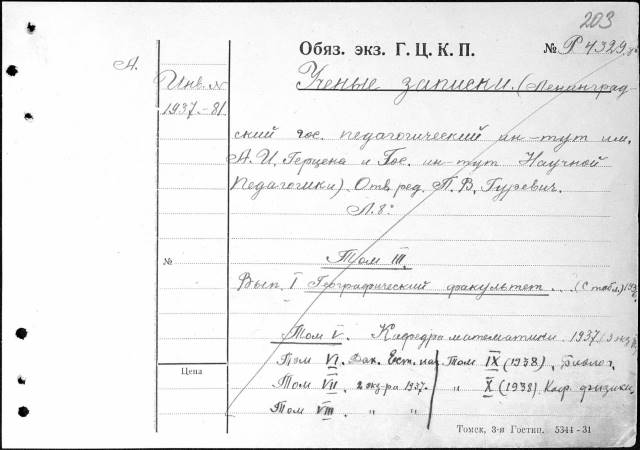 203
Обяз. экз. Г. Ц. К. П. № Р4329.8°
А. Инв. №
1937.-81.
Ученые записки. (Ленинград-
ский гос. педагогический ин-тут им.
А. И. Герцена и Гос. ин-тут Научной
Педагогики). Отв. ред. П. В. Гуревич.
Л. 8°
№
Том III.
Вып. I Географический факультет. . . (С табл.)
Том V. Кафедра математики. 1937. (3 экз.)
Том VI. Фак. Ест. наук
Том VII. 2 экз-ра 1937.
Том VIII. " "
Том IX (1938),
" X (1938). Каф. физики.
Цена
Томск, 3-я Гостип. 5344-31